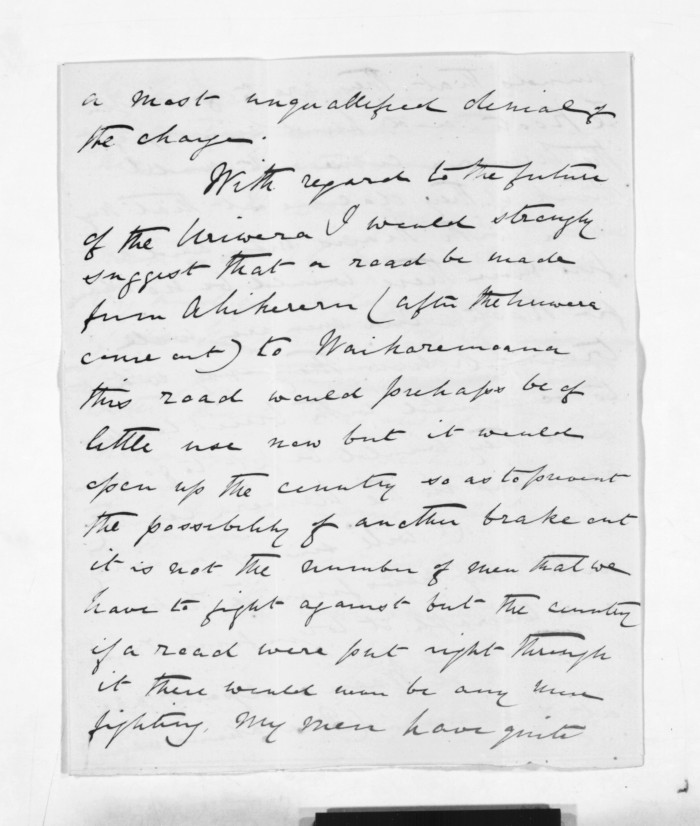 a most unqualified denial of
the charge.
With regard to the future
of the Uriwera I would strongly
suggest that a road be made
from Ahikereru (after the Uriwera
come out) to Waikaremoana
this road would perhaps be of
little use now but it would
open up the country so as to prevent
the possibility of another brake out
it is not the number of men that we
have to fight against but the country
if a road were put right through
it there would never be any more
fighting. My men have quite